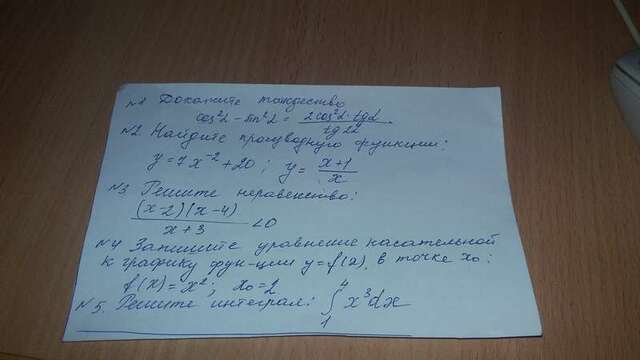 №1 Докажите тождество
cos²α - sin²α = 2cos²α·tgα / tg2α.
№2 Найдите производную функции:
y=7x⁻²+20; y= x+1 / x
№3 Решите неравенство:
(x-2)(x-4) / x+3 <0
№4 Запишите уравнение касательной
к графику фун-ции y=f(x), в точке x₀:
f(x)=x²; x₀=2
№5. Решите интеграл: ∫₁⁴ x³dx